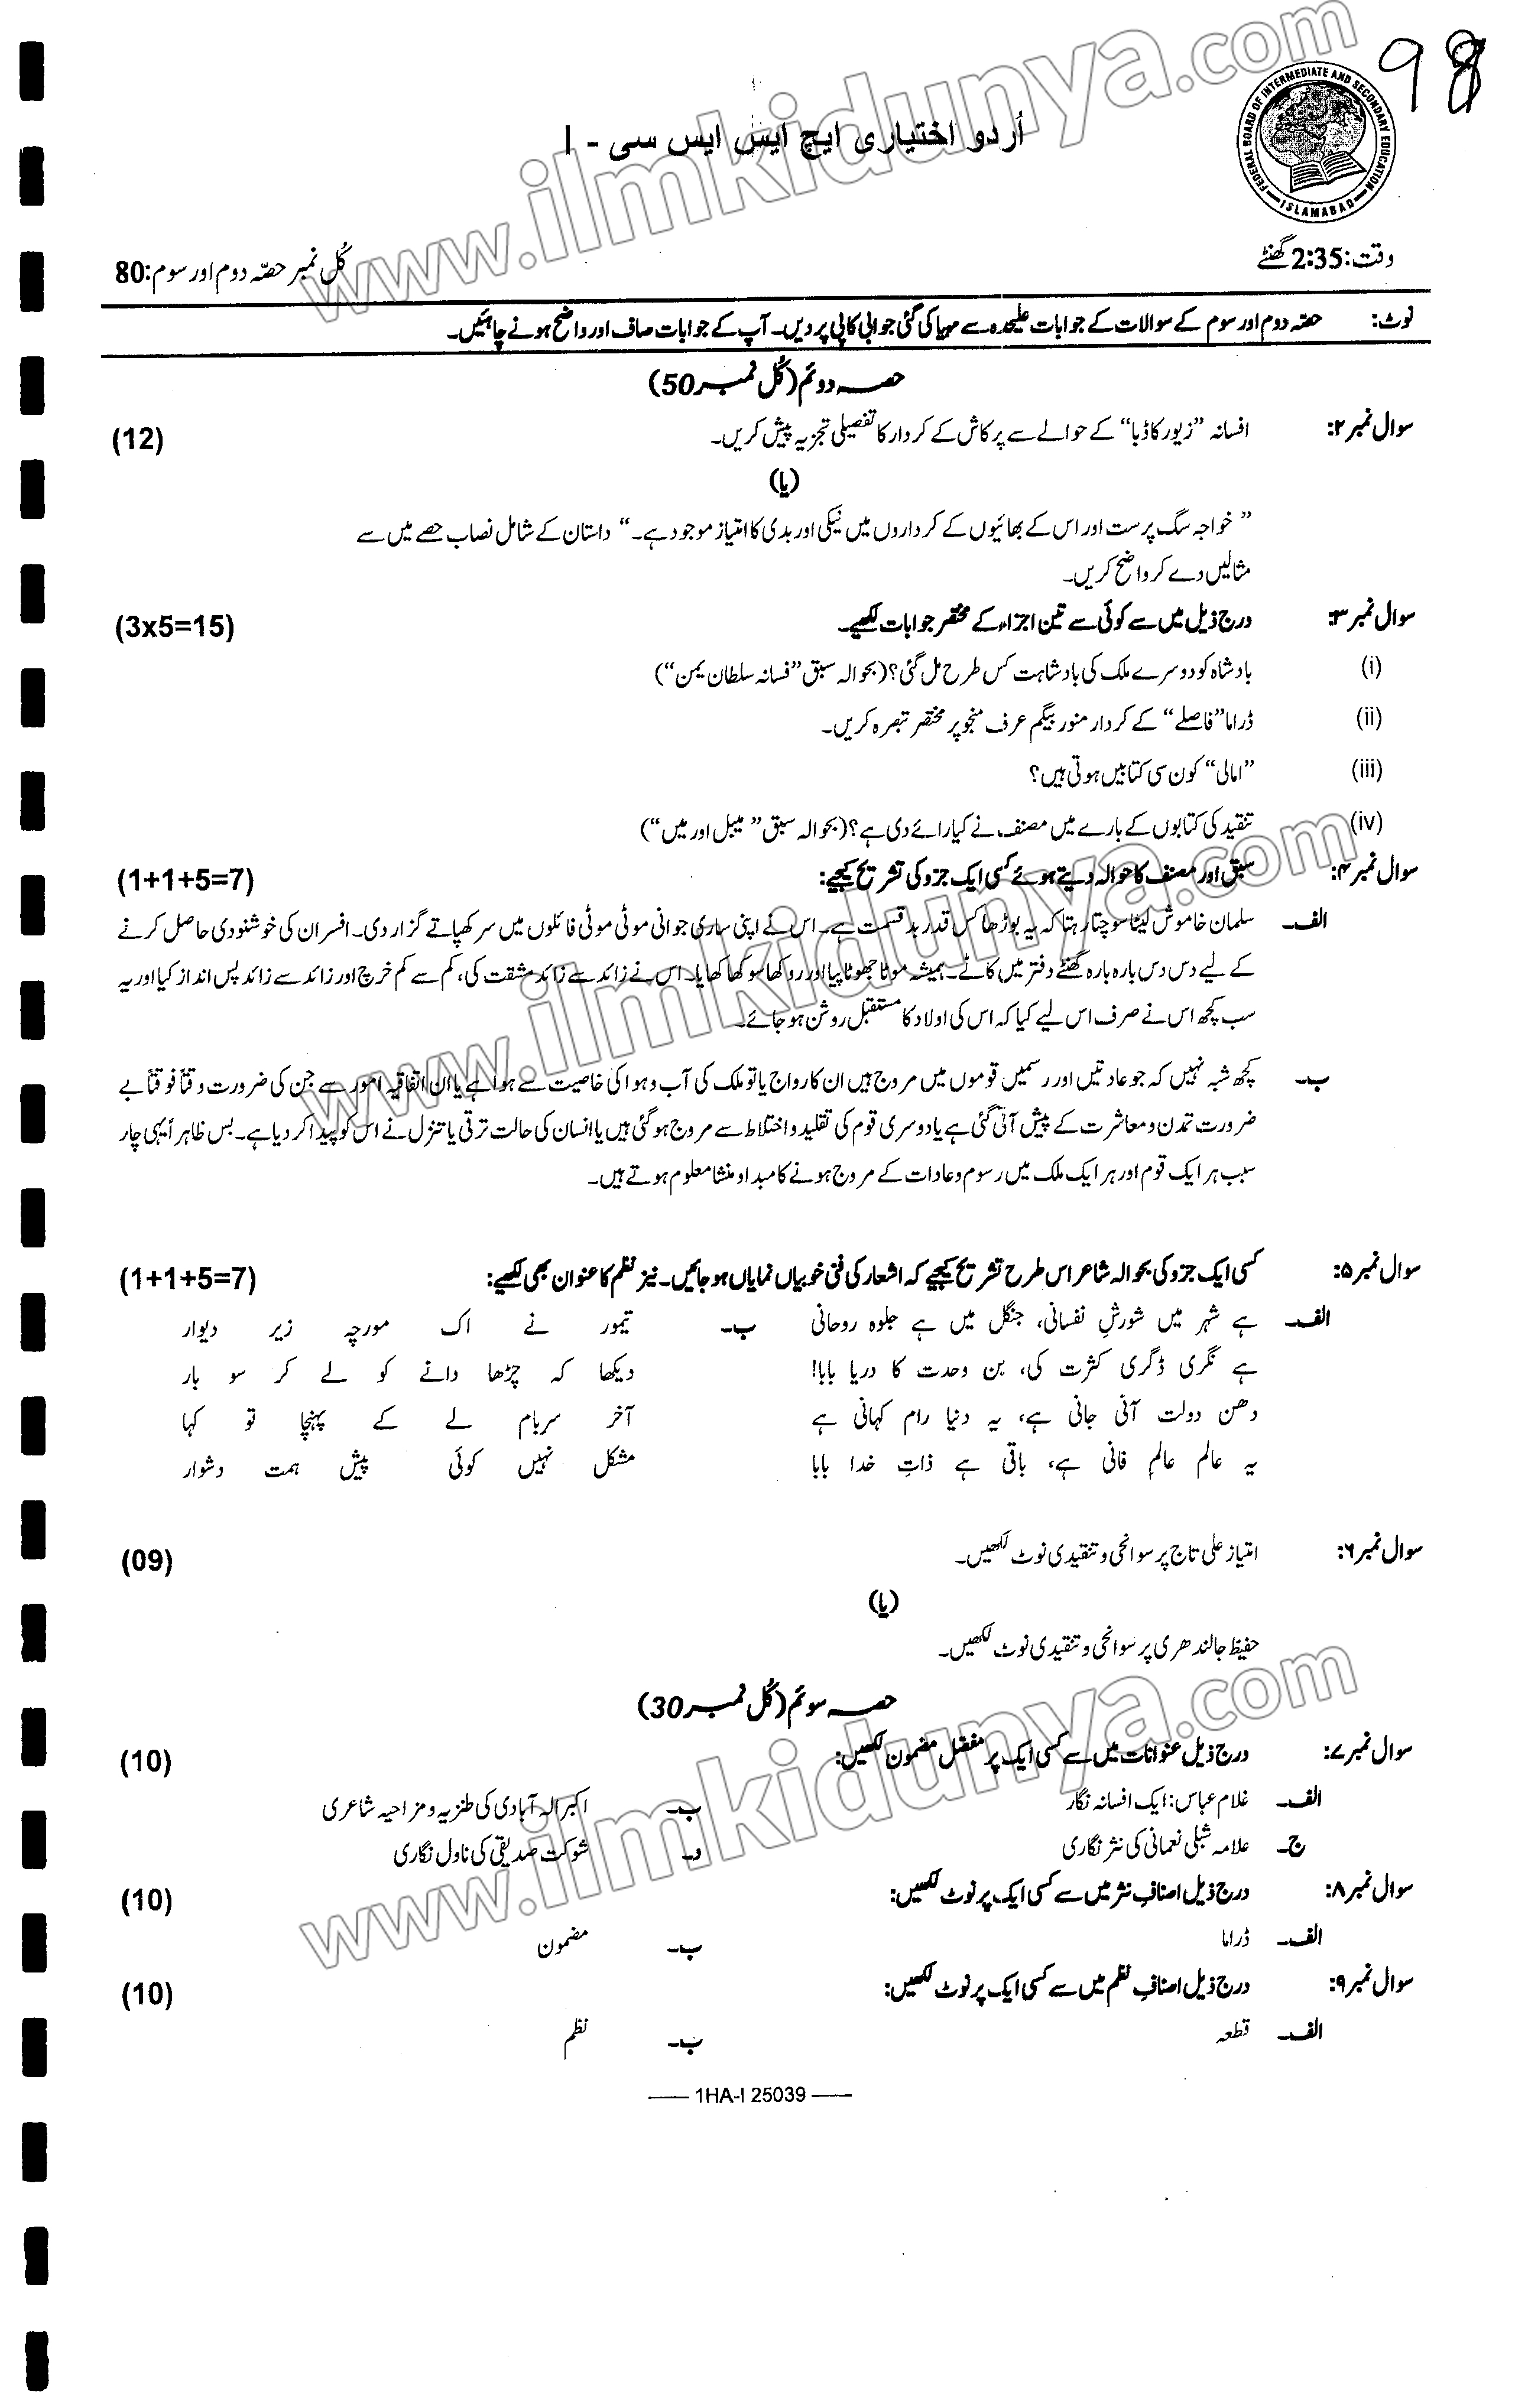 98
FEDERAL BOARD OF INTERMEDIATE AND SECONDARY EDUCATION
ISLAMABAD
www.ilmkidunya.com
اُردو اختیاری ایچ ایس ایس سی - I
وقت: 2:35 گھنٹے
کُل نمبر حصّہ دوم اور سوم: 80
نوٹ: حصّہ دوم اور سوم کے سوالات کے جوابات علیحدہ سے مہیا کی گئی جوابی کاپی پر دیں۔ آپ کے جوابات صاف اور واضح ہونے چاہئیں۔
حصہ دوئم (کُل نمبر 50)
سوال نمبر ۲: افسانہ ”زیور کا ڈبا“ کے حوالے سے پرکاش کے کردار کا تفصیلی تجزیہ پیش کریں۔ (12)
(یا)
”خواجہ سگ پرست اور اس کے بھائیوں کے کرداروں میں نیکی اور بدی کا امتیاز موجود ہے۔“ داستان کے شامل نصاب حصے میں سے
مثالیں دے کر واضح کریں۔
سوال نمبر ۳: درج ذیل میں سے کوئی سے تین اجزاء کے مختصر جوابات لکھیے۔ (3x5=15)
(i) بادشاہ کو دوسرے ملک کی بادشاہت کس طرح مل گئی؟ (بحوالہ سبق ”فسانہ سلطان یمن“)
(ii) ڈراما ”فاصلے“ کے کردار منور بیگم عرف منجو پر مختصر تبصرہ کریں۔
(iii) ”امالی“ کون سی کتابیں ہوتی ہیں؟
(iv) تنقید کی کتابوں کے بارے میں مصنف نے کیا رائے دی ہے؟ (بحوالہ سبق ”میبل اور میں“)
سوال نمبر ۴: سبق اور مصنف کا حوالہ دیتے ہوئے کسی ایک جزو کی تشریح کیجیے: (1+1+5=7)
الف۔ سلمان خاموش لیٹا سوچتا رہتا کہ یہ بوڑھا کس قدر بد قسمت ہے۔ اس نے اپنی ساری جوانی موٹی موٹی فائلوں میں سر کھپاتے گزار دی۔ افسران کی خوشنودی حاصل کرنے
کے لیے دس دس بارہ بارہ گھنٹے دفتر میں کاٹے۔ ہمیشہ موٹا جھوٹا پہنا اور روکھا سوکھا کھایا۔ اس نے زائد سے زائد مشقت کی، کم سے کم خرچ اور زائد سے زائد پس انداز کیا اور یہ
سب کچھ اس نے صرف اس لیے کیا کہ اس کی اولاد کا مستقبل روشن ہو جائے۔
ب۔ کچھ شبہ نہیں کہ جو عادتیں اور رسمیں قوموں میں مروج ہیں ان کا رواج یا تو ملک کی آب و ہوا کی خاصیت سے ہوا ہے یا ان اتفاقیہ امور سے جن کی ضرورت وقتاً فوقتاً بے
ضرورت تمدن و معاشرت کے پیش آتی گئی ہے یا دوسری قوم کی تقلید و اختلاط سے مروج ہو گئی ہیں یا انسان کی حالت ترقی یا تنزل نے اس کو پیدا کر دیا ہے۔ بس ظاہراً یہی چار
سبب ہر ایک قوم اور ہر ایک ملک میں رسوم و عادات کے مروج ہونے کا مبداو منشا معلوم ہوتے ہیں۔
سوال نمبر ۵: کسی ایک جزو کی بحوالہ شاعر اس طرح تشریح کیجیے کہ اشعار کی فنی خوبیاں نمایاں ہو جائیں۔ نیز نظم کا عنوان بھی لکھیے: (1+1+5=7)
الف۔ ہے شہر میں شورشِ نفسانی، جنگل میں ہے جلوہ روحانی
ہے نگری ڈگری کثرت کی، بن وحدت کا دریا بابا!
دھن دولت آنی جانی ہے، یہ دنیا رام کہانی ہے
یہ عالم عالمِ فانی ہے، باقی ہے ذاتِ خدا بابا
ب۔ تیمور نے اک مورچہ زیر دیوار
دیکھا کہ چڑھا دانے کو لے کر سو بار
آخر سربام لے کے پہنچا تو کہا
مشکل نہیں کوئی پیش ہمت دشوار
سوال نمبر ۶: امتیاز علی تاج پر سوانحی و تنقیدی نوٹ لکھیں۔ (09)
(یا)
حفیظ جالندھری پر سوانحی و تنقیدی نوٹ لکھیں۔
حصہ سوئم (کُل نمبر 30)
سوال نمبر ۷: درج ذیل عنوانات میں سے کسی ایک پر مفصّل مضمون لکھیں: (10)
الف۔ غلام عباس: ایک افسانہ نگار ب۔ اکبر الہ آبادی کی طنزیہ و مزاحیہ شاعری
ج۔ علامہ شبلی نعمانی کی نثر نگاری د۔ شوکت صدیقی کی ناول نگاری
سوال نمبر ۸: درج ذیل اصنافِ نثر میں سے کسی ایک پر نوٹ لکھیں: (10)
الف۔ ڈراما ب۔ مضمون
سوال نمبر ۹: درج ذیل اصنافِ نظم میں سے کسی ایک پر نوٹ لکھیں: (10)
الف۔ قطعہ ب۔ نظم
—— 1HA-I 25039 ——